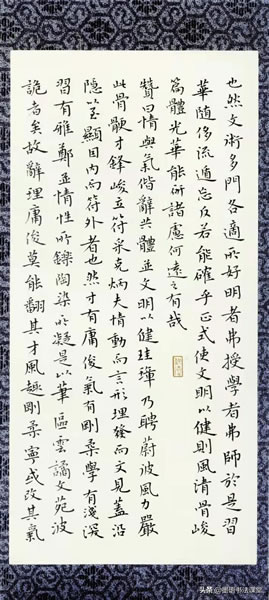 也然文術多門各適所好明者弗授學者弗師於是習
華隨侈流遁忘反若能確乎正式使文明以健則風清骨峻
篇體光華能研諸慮何遠之有哉
贊曰情與氣偕辭共體並文明以健珪璋乃聘蔚彼風力嚴
此骨骾才鋒峻立符采克炳夫情動而言形理發而文見蓋沿
隱以至顯因內而符外者也然才有庸俊氣有剛柔學有淺深
習有雅鄭並情性所鑠陶染所凝是以筆區雲譎文苑波
詭者矣故辭理庸俊莫能翻其才風趣剛柔寧或改其氣
头条